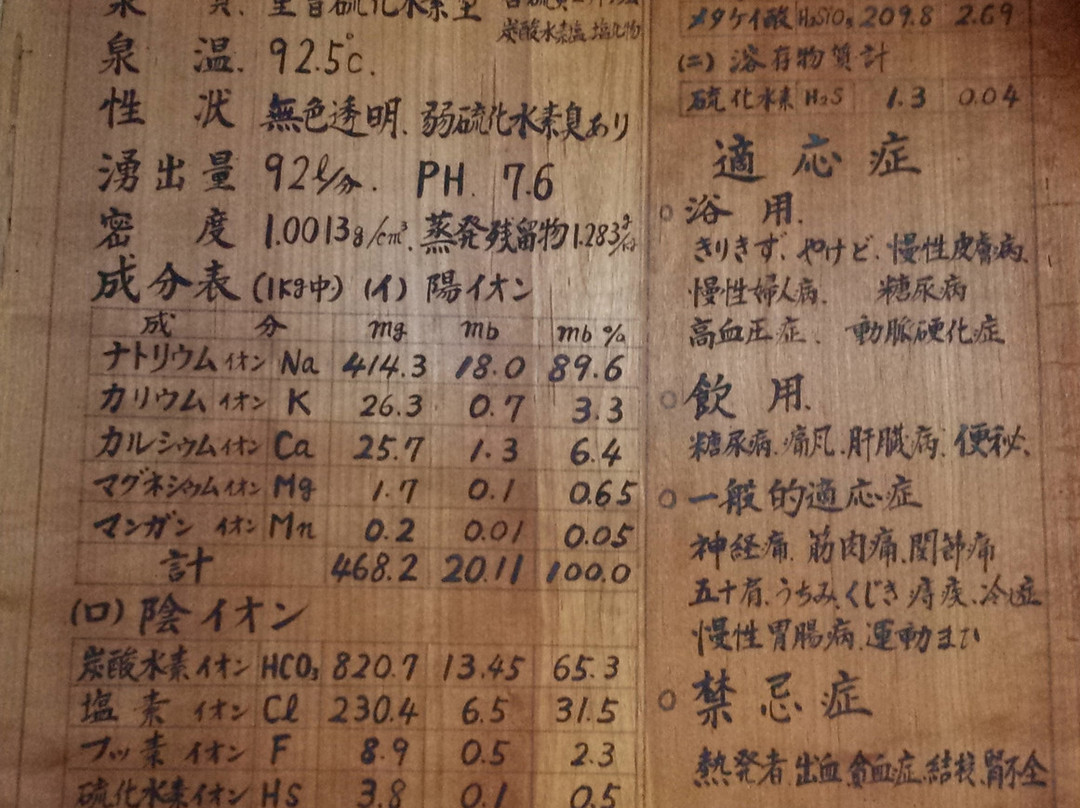 泉温. 92.5℃.
性状 無色透明、弱硫化水素臭あり
湧出量 92ℓ/分. PH. 7.6
密度 1.0013g/cm³. 蒸発残留物1.283g/kg
成分表(1kg中) (イ) 陽イオン
成分 mg mb mb%
ナトリウムイオン Na 414.3 18.0 89.6
カリウムイオン K 26.3 0.7 3.3
カルシウムイオン Ca 25.7 1.3 6.4
マグネシウムイオン Mg 1.7 0.1 0.65
マンガンイオン Mn 0.2 0.01 0.05
計 468.2 20.11 100.0
(ロ) 陰イオン
炭酸水素イオン HCO₃ 820.7 13.45 65.3
塩素イオン Cl 230.4 6.5 31.5
フッ素イオン F 8.9 0.5 2.3
硫化水素イオン HS 3.8 0.1 0.5
炭酸水素塩、塩化物
メタケイ酸 H₂SiO₃ 209.8 2.69
(ニ) 溶存物質計
硫化水素 H₂S 1.3 0.04
適応症
○浴用.
きりきず、やけど、慢性皮膚病、
慢性婦人病、 糖尿病
高血圧症、 動脈硬化症
○飲用.
糖尿病、痛風、肝臓病、便秘、
○一般的適応症
神経痛、筋肉痛、関節痛
五十肩、うちみ、くじき、痔疾、冷え症
慢性胃腸病、運動まひ
○禁忌症
熱発者、出血、貧血症、結核、腎不全